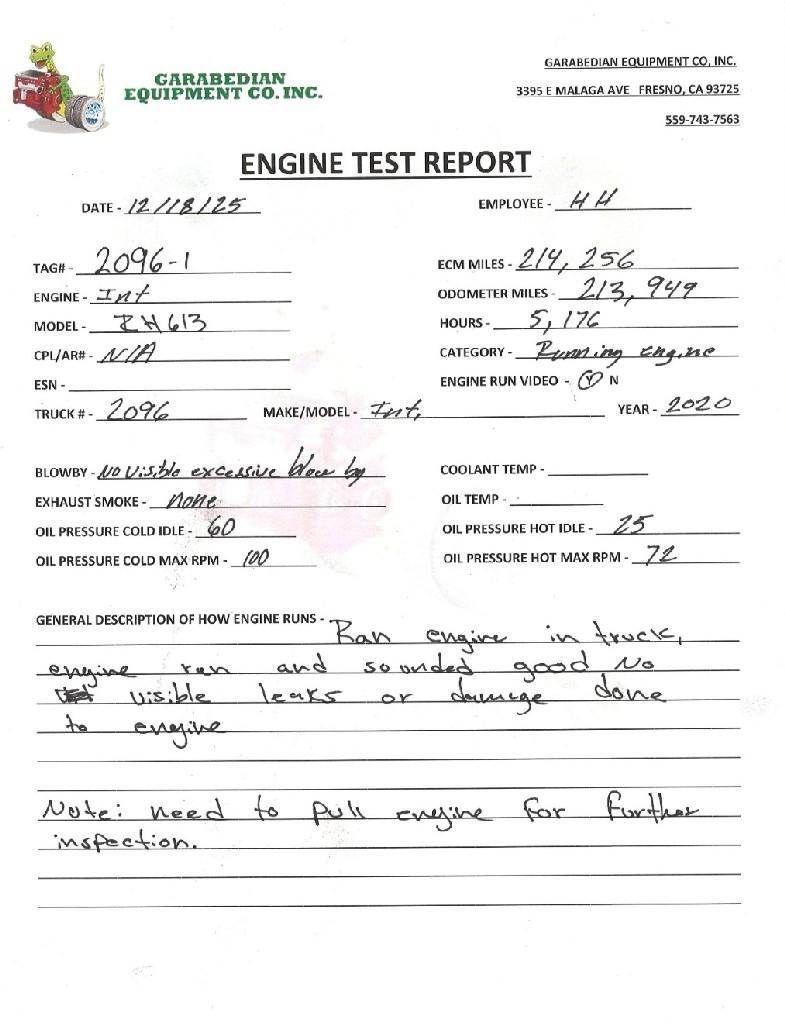 GARABEDIAN
EQUIPMENT CO. INC.
GARABEDIAN EQUIPMENT CO, INC.
3395 E MALAGA AVE FRESNO, CA 93725
559-743-7563
ENGINE TEST REPORT
DATE - 12/18/25 EMPLOYEE - HH
TAG# - 2096-1 ECM MILES - 214,256
ENGINE - Int ODOMETER MILES - 213,949
MODEL - RH613 HOURS - 5,176
CPL/AR# - N/A CATEGORY - Running engine
ESN - ENGINE RUN VIDEO - Y N
TRUCK # - 2096 MAKE/MODEL - Int. YEAR - 2020
BLOWBY - No visible excessive blow by COOLANT TEMP -
EXHAUST SMOKE - None OIL TEMP -
OIL PRESSURE COLD IDLE - 60 OIL PRESSURE HOT IDLE - 25
OIL PRESSURE COLD MAX RPM - 100 OIL PRESSURE HOT MAX RPM - 72
GENERAL DESCRIPTION OF HOW ENGINE RUNS - Ran engine in truck,
engine ran and sounded good No
visible leaks or damage done
to engine
Note: need to pull engine for further
inspection.